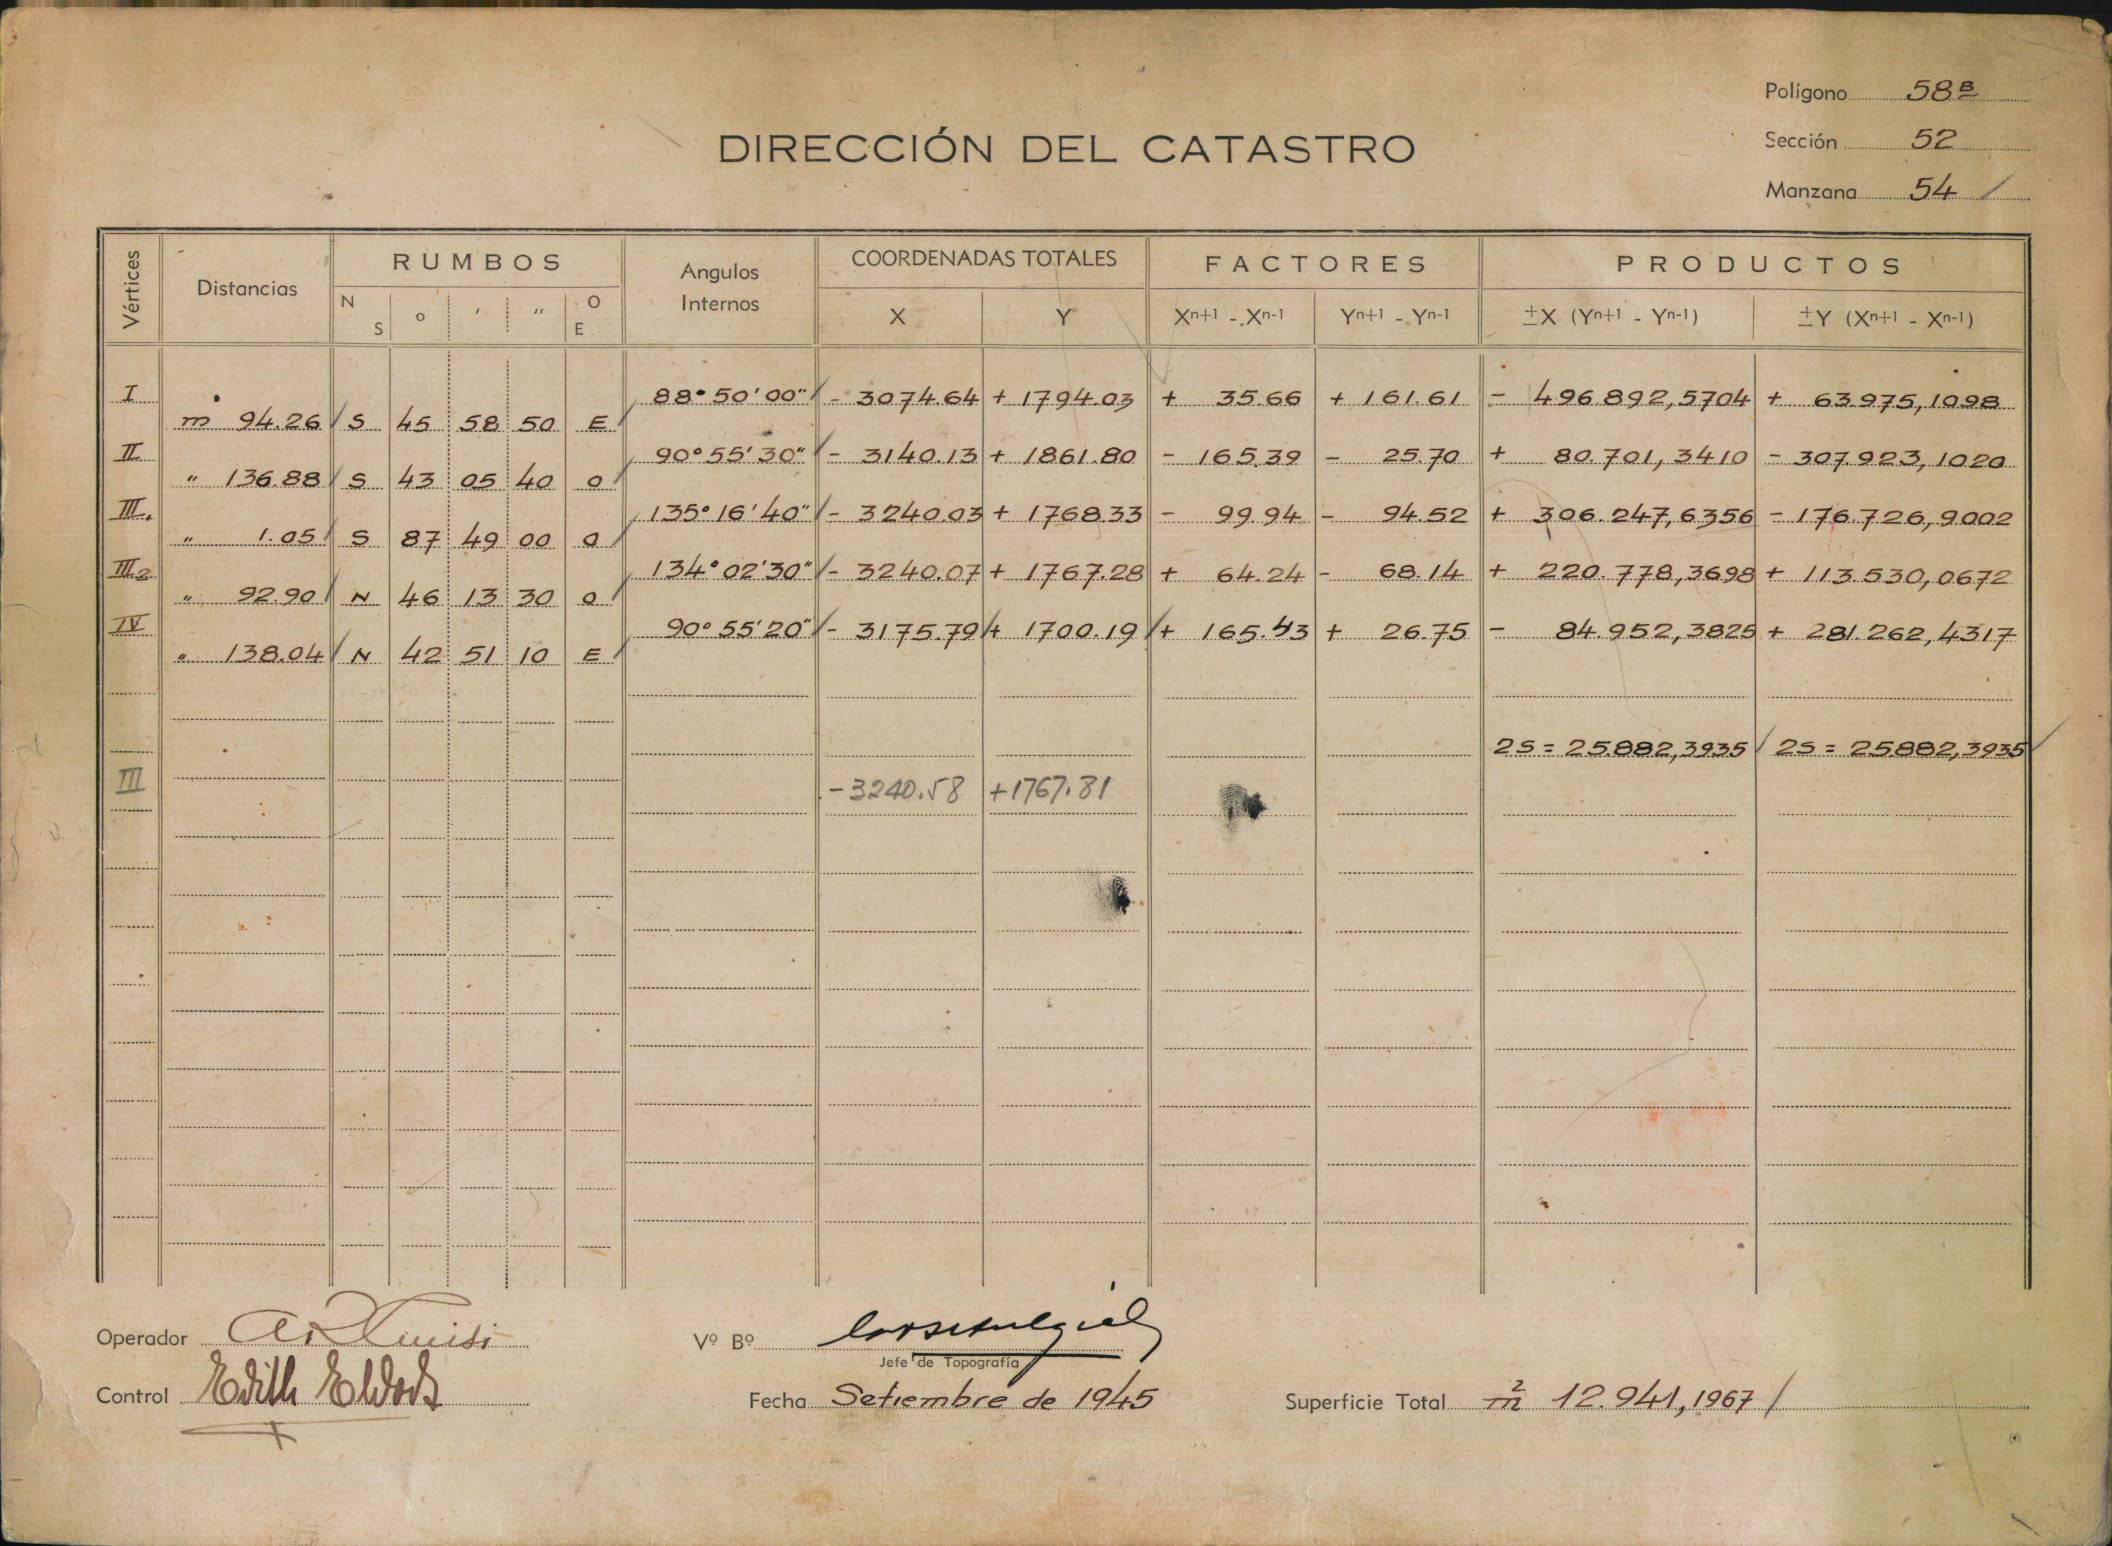 Polígono 58B
Sección 52
Manzana 54 /
DIRECCIÓN DEL CATASTRO
Vértices Distancias RUMBOS Angulos Internos COORDENADAS TOTALES FACTORES PRODUCTOS
N S o ' " O E X Y Xn+1 - Xn-1 Yn+1 - Yn-1 ±X (Yn+1 - Yn-1) ±Y (Xn+1 - Xn-1)
I 88° 50' 00" / - 3074.64 + 1794.03 + 35.66 + 161.61 - 496.892,5704 + 63.975,1098
m 94.26 / S 45 58 50 E /
II 90° 55' 30" / - 3140.13 + 1861.80 - 165.39 - 25.70 + 80.701,3410 - 307.923,1020
" 136.88 / S 43 05 40 O /
III1 135° 16' 40" / - 3240.03 + 1768.33 - 99.94 - 94.52 + 306.247,6356 - 176.726,9002
" 1.05 / S 87 49 00 O /
III2 134° 02' 30" / - 3240.07 + 1767.28 + 64.24 - 68.14 + 220.778,3698 + 113.530,0672
" 92.90 / N 46 13 30 O /
IV 90° 55' 20" / - 3175.79 / + 1700.19 / + 165.43 + 26.75 - 84.952,3825 + 281.262,4317
" 138.04 / N 42 51 10 E /
2S = 25.882,3935 / 2S = 25.882,3935 /
III - 3240.58 + 1767.81
Operador
Vº Bº
Jefe de Topografía
Control Edith
Fecha Setiembre de 1945
Superficie Total m2 12.941,1967 /